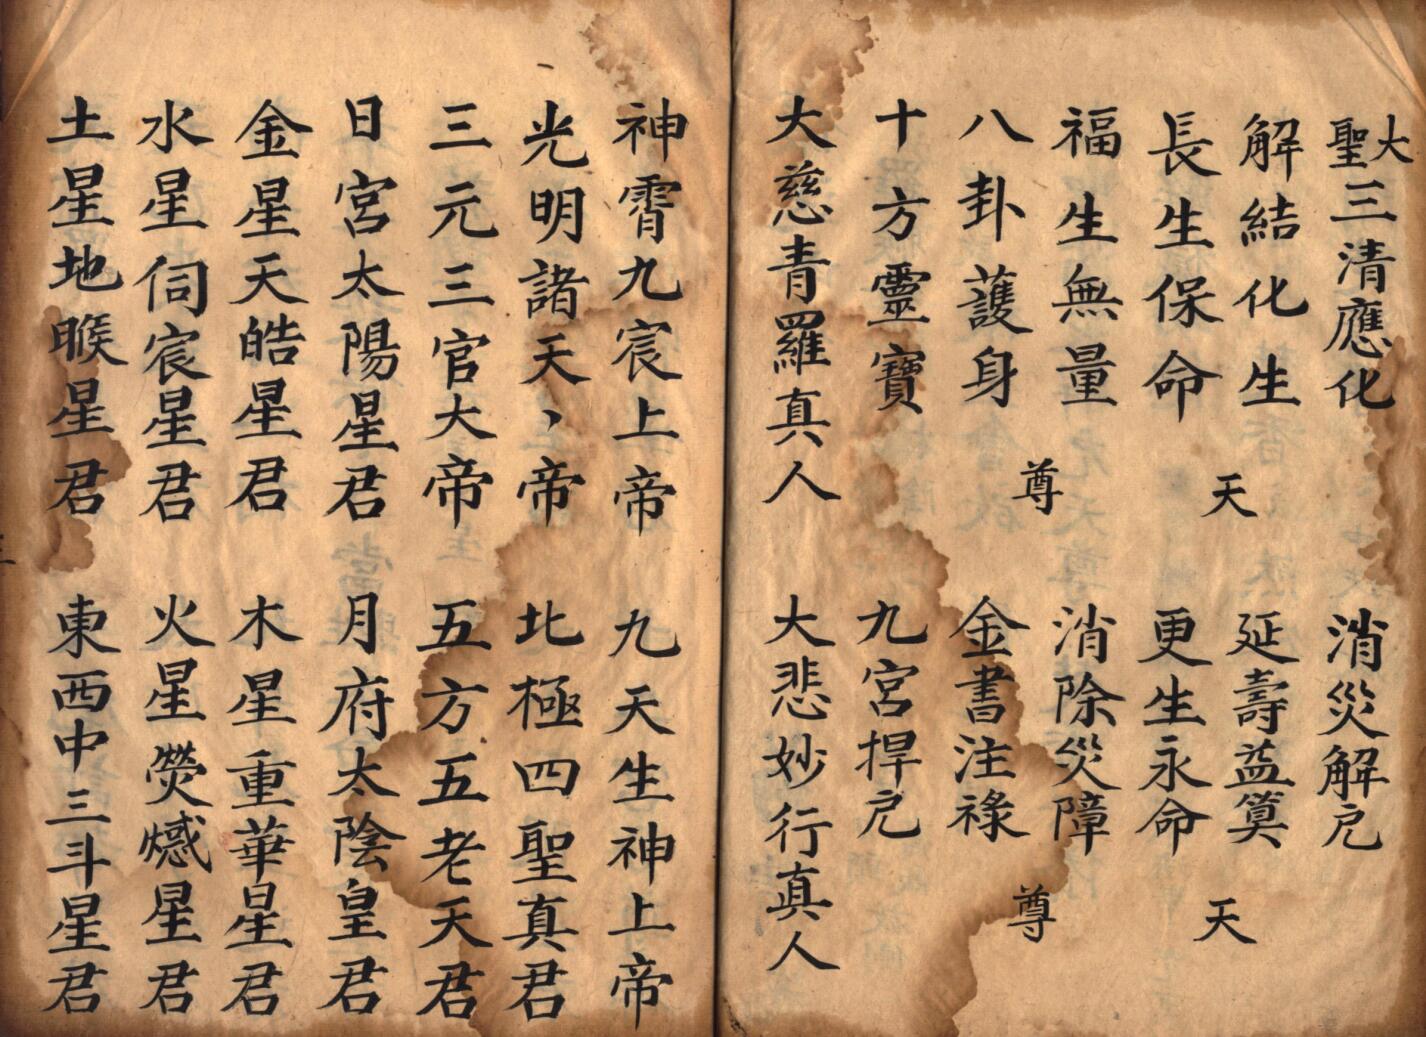 大聖三清應化 消災解厄
解結化生 延壽益算
天 天
長生保命 更生永命
福生無量 消除災障
尊 尊
八卦護身 金書注祿
十方靈寶 九宮捍厄
大慈青羅真人 大悲妙行真人
神霄九宸上帝 九天生神上帝
光明諸天丶帝 北極四聖真君
三元三官大帝 五方五老天君
日宮太陽星君 月府太陰皇君
金星天皓星君 木星重華星君
水星伺宸星君 火星熒憾星君
土星地睺星君 東西中三斗星君